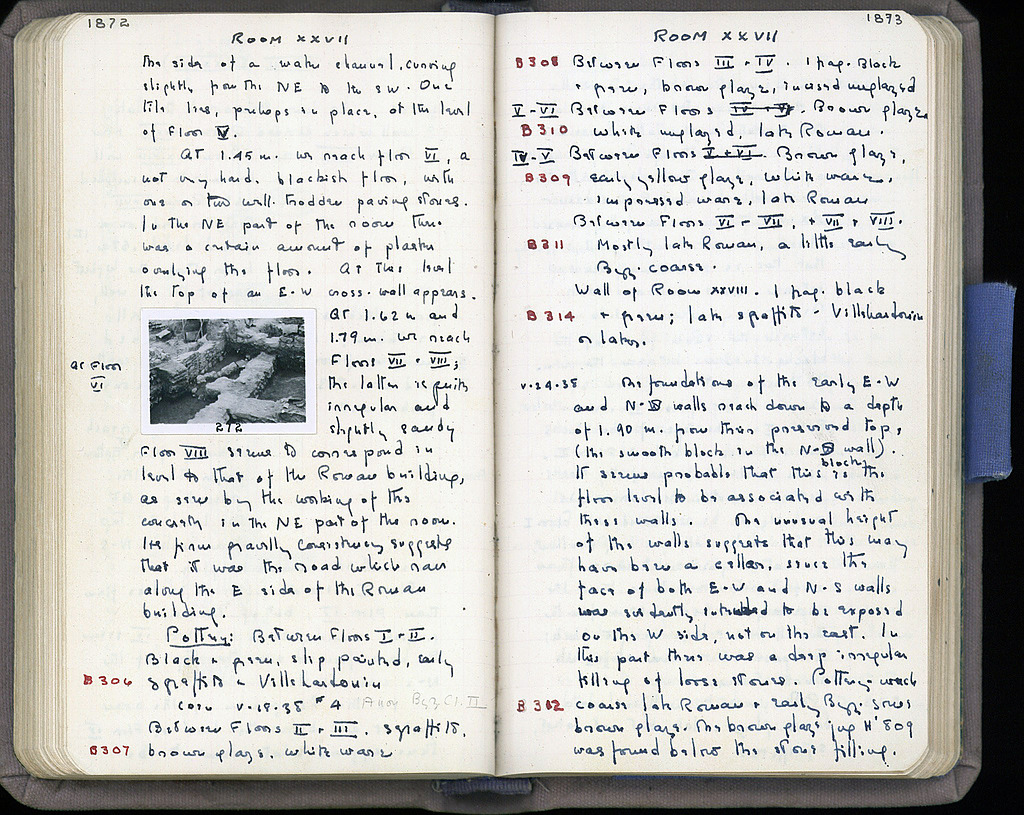 1872
ROOM XXVII
the side of a water channel, curving
slightly from the NE to the SW. One
tile lies, perhaps in place, at the level
of Floor V.
At 1.45 m. we reach floor VI, a
not very hard, blackish floor, with
one or two well-trodden paving stones.
In the NE part of the room there
was a certain amount of plaster
overlying this floor. At this level
the top of an E-W cross-wall appears.
At 1.62 m and
1.79 m. we reach
Floors VII + VIII;
the latter is quite
irregular and
slightly sandy
at Floor
VI
272
Floor VIII seems to correspond in
level to that of the Roman building,
as seen by the working of the
concrete in the NE part of the room.
Its firm gravelly consistency suggests
that it was the road which ran
along the E side of the Roman
building.
Pottery: Between Floors I - II.
Black + green, slip painted, early
B306 sgraffito + Villehardouin
Coin V-18-38 #4 (Anon Byz Cl. II
Between Floors II - III, sgraffito,
B307 brown glaze, white ware
1873
ROOM XXVII
B308 Between Floors III - IV. 1 frag. Black
+ green, brown glaze, incised unglazed
V-VI Between Floors IV - V. Brown glaze
B310 white unglazed, late Roman.
IV-V Between Floors V - VI. Brown glaze,
B309 early yellow glaze, white ware,
impressed ware, late Roman
Between Floors VI - VII, + VII + VIII.
B311 Mostly late Roman, a little early
Byz. coarse.
Wall of Room XXVIII. 1 frag. black
B314 + green; late sgraffito - Villehardouin
or later.
V-24-38 The foundations of the early E-W
and N-S walls reach down to a depth
of 1.90 m. from their preserved top,
(the smooth block in the N-S wall).
It seems probable that this block is the
floor level to be associated with
these walls. The unusual height
of the walls suggests that this may
have been a cellar, since the
face of both E-W and N-S walls
was evidently intended to be exposed
on the W side, not on the east. In
this part there was a deep irregular
filling of loose stones. Pottery
B312 coarse late Roman + early Byz. some
brown glaze. The brown glaze jug H'809
was found below the stone filling.